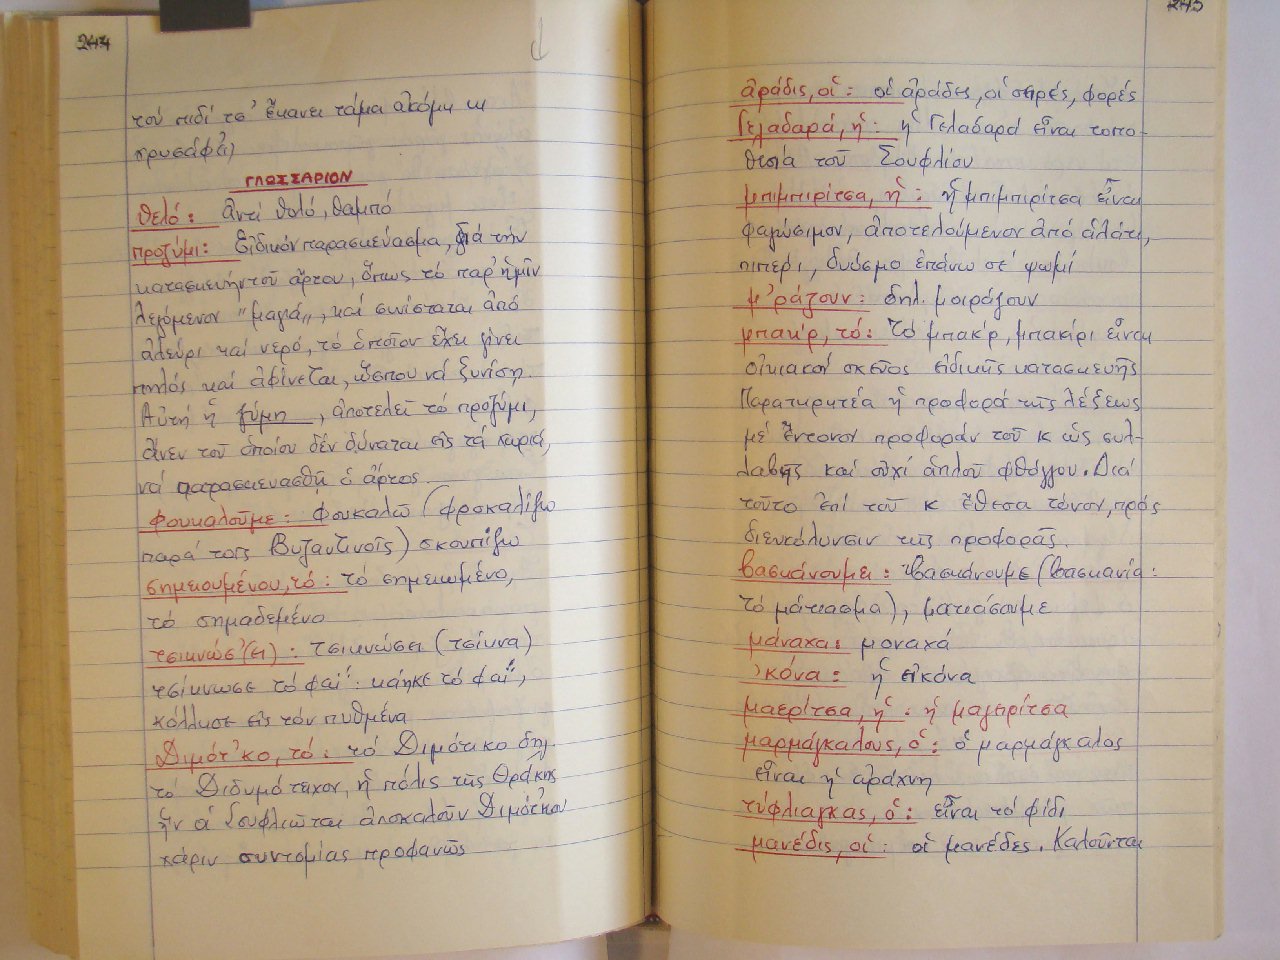 244
τοῦ πιδί το' ἔκανει τάμα ἀκόμη κι
προσάφι)
ΓΛΩΣΣΑΡΙΟΝ
θελό: ἀντί θολό, θαμπό
προζύμι: Εἰδικόν παρασκεύασμα, διά τήν
κατασκευήν τοῦ ἄρτου, ὅπως τό παρ' ἡμῖν
λεγόμενον "μαγιά", καί συνίσταται ἀπό
ἀλεύρι καί νερό, τό ὁποῖον ἔχει γίνει
πηλός καί ἀφίνεται, ὥσπου νά ξυνίση.
Αὐτή ἡ ζύμη, ἀποτελεῖ τό προζύμι,
ἄνευ τοῦ ὁποίου δέν δύναται εἰς τά χωριά,
νά παρασκευασθῇ ὁ ἄρτος.
φουκαλοῦμε: φουκαλῶ (φροκαλίζω
παρά τοῖς Βυζαντινοῖς) σκουπίζω
σημειουμένου, τό: τό σημειωμένο,
τό σημαδεμένο
τσικνώσ'(ει): τσικνώσει (τσίκνα)
τσίκνωσε τό φαΐ: κάηκε τό φαΐ,
κόλλησε εἰς τόν πυθμένα
Διμότ'κο, τό: τό Διμότικο δηλ.
τό Διδυμότειχον, ἡ πόλις τῆς Θράκης
ἥν οἱ Σουφλιῶται ἀποκαλοῦν Διμότ'κου
χάριν συντομίας προφανῶς
245
ἀράδις, οἱ: οἱ ἀράδες, οἱ σειρές, φορές
Γελαδαρά, ἡ: ἡ Γελαδαρά εἶναι τοπο-
θεσία τοῦ Σουφλίου
μπιμπιρίτσα, ἡ: ἡ μπιμπιρίτσα εἶναι
φαγώσιμον, ἀποτελούμενον ἀπό ἁλάτι,
πιπέρι, δυόσμο ἐπάνω σέ ψωμί
μ'ράζουν: δηλ. μοιράζουν
μπακ'ρ, τό: τό μπακ'ρ, μπακίρι εἶναι
οἰκιακόν σκεῦος εἰδικῆς κατασκευῆς
Παρατηρητέα ἡ προφορά τῆς λέξεως
μέ ἔντονον προφοράν τοῦ κ ὡς συλ-
λαβῆς καί οὐχί ἁπλοῦ φθόγγου. Διά
τοῦτο ἐπί τοῦ κ ἔθεσα τόνον, πρός
διευκόλυνσιν τῆς προφορᾶς.
βασκάνουμει: βασκάνουμε (βασκανία:
τό μάτιασμα), ματιάσουμε
μάναχα: μοναχά
'κόνα: ἡ εἰκόνα
μαερίτσα, ἡ: ἡ μαγερίτσα
μαρμάγκαλους, ὁ: ὁ μαρμάγκαλος
εἶναι ἡ ἀράχνη
τύφλιαγκας, ὁ: εἶναι τό φίδι
μανέδις, οἱ: οἱ μανέδες. Καλοῦνται